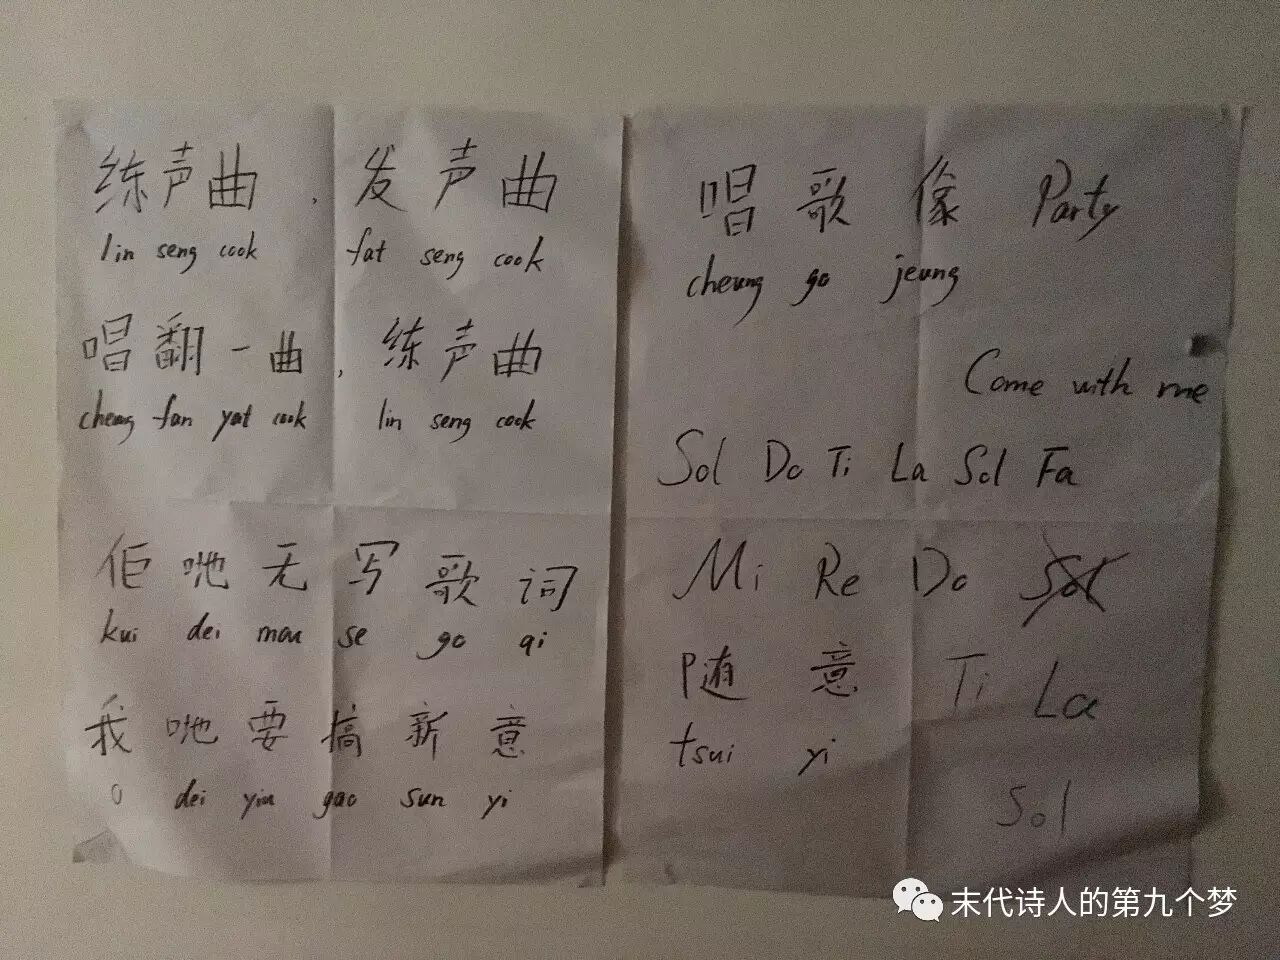 练声曲,发声曲
lin seng cook fat seng cook
唱翻一曲,练声曲
cheung fan yat cook lin seng cook
佢哋无写歌词
kui dei mou se go qi
我哋要搞新意
o dei yiu gao sun yi
唱歌像 Party
cheung go jeung
Come with me
Sol Do Ti La Sol Fa
Mi Re Do Sol
随意 Ti La
tsui yi
Sol
末代诗人的第九个梦